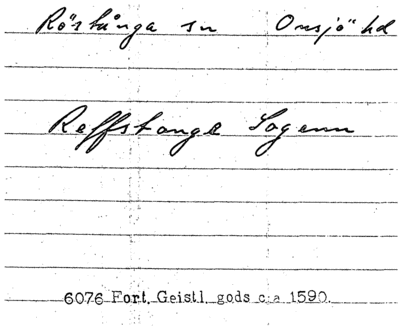 Röstånga sn Onsjö hd
Reffstange Sogenn
6076 Fort. Geistl. gods c:a 1590.